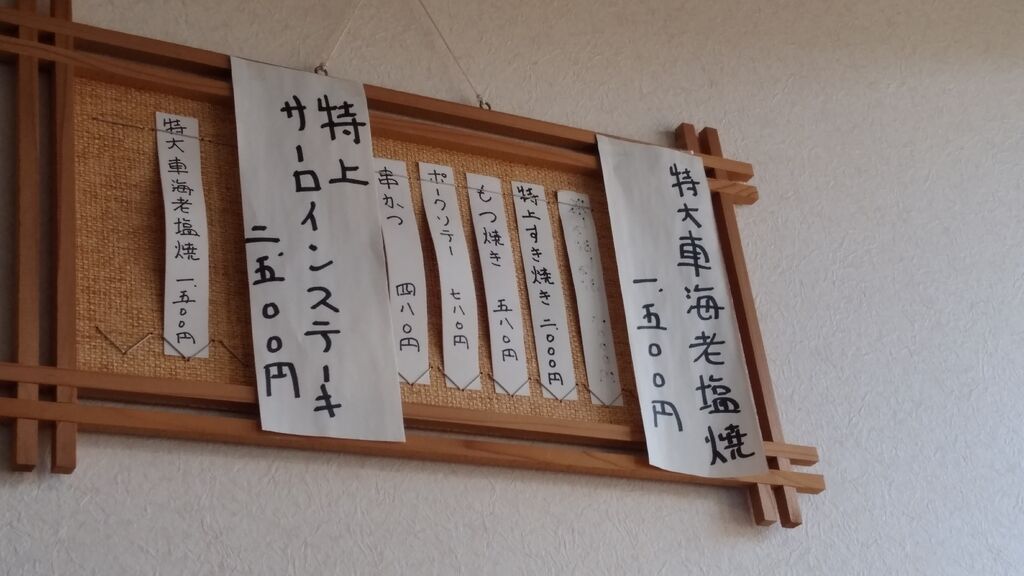 特大車海老塩焼
一、五〇〇円
特上すき焼き 二、〇〇〇円
もつ焼き 五八〇円
ポークソテー 七八〇円
串かつ 四八〇円
特上
サーロインステーキ
二、五〇〇円
特大車海老塩焼 一、五〇〇円